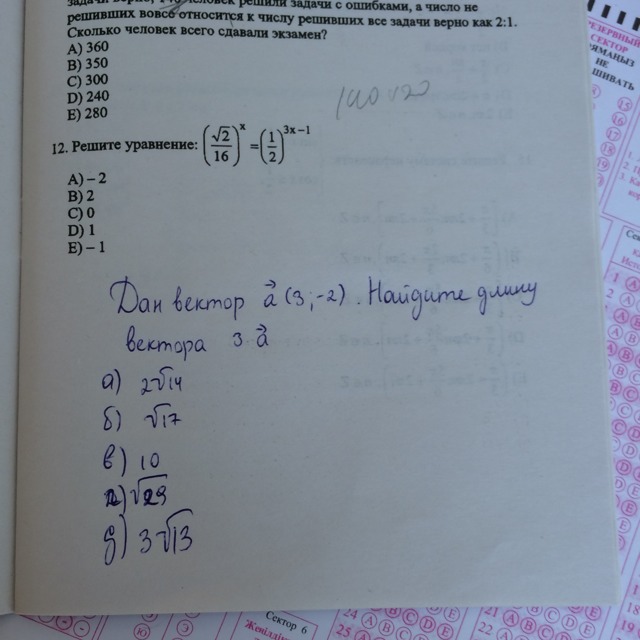 задачи верно, человек решили задачи с ошибками, а число не
решивших вовсе относится к числу решивших все задачи верно как 2:1.
Сколько человек всего сдавали экзамен?
A) 360
B) 350
C) 300
D) 240
E) 280
12. Решите уравнение: (√2/16)^x = (1/2)^(3x–1)
A) – 2
B) 2
C) 0
D) 1
E) – 1
Дан вектор a⃗ (3;-2). Найдите длину
вектора 3a⃗
а) 2√14
б) √17
в) 10
г) √29
д) 3√13
СЕКТОР
НЕ
Сектор 6